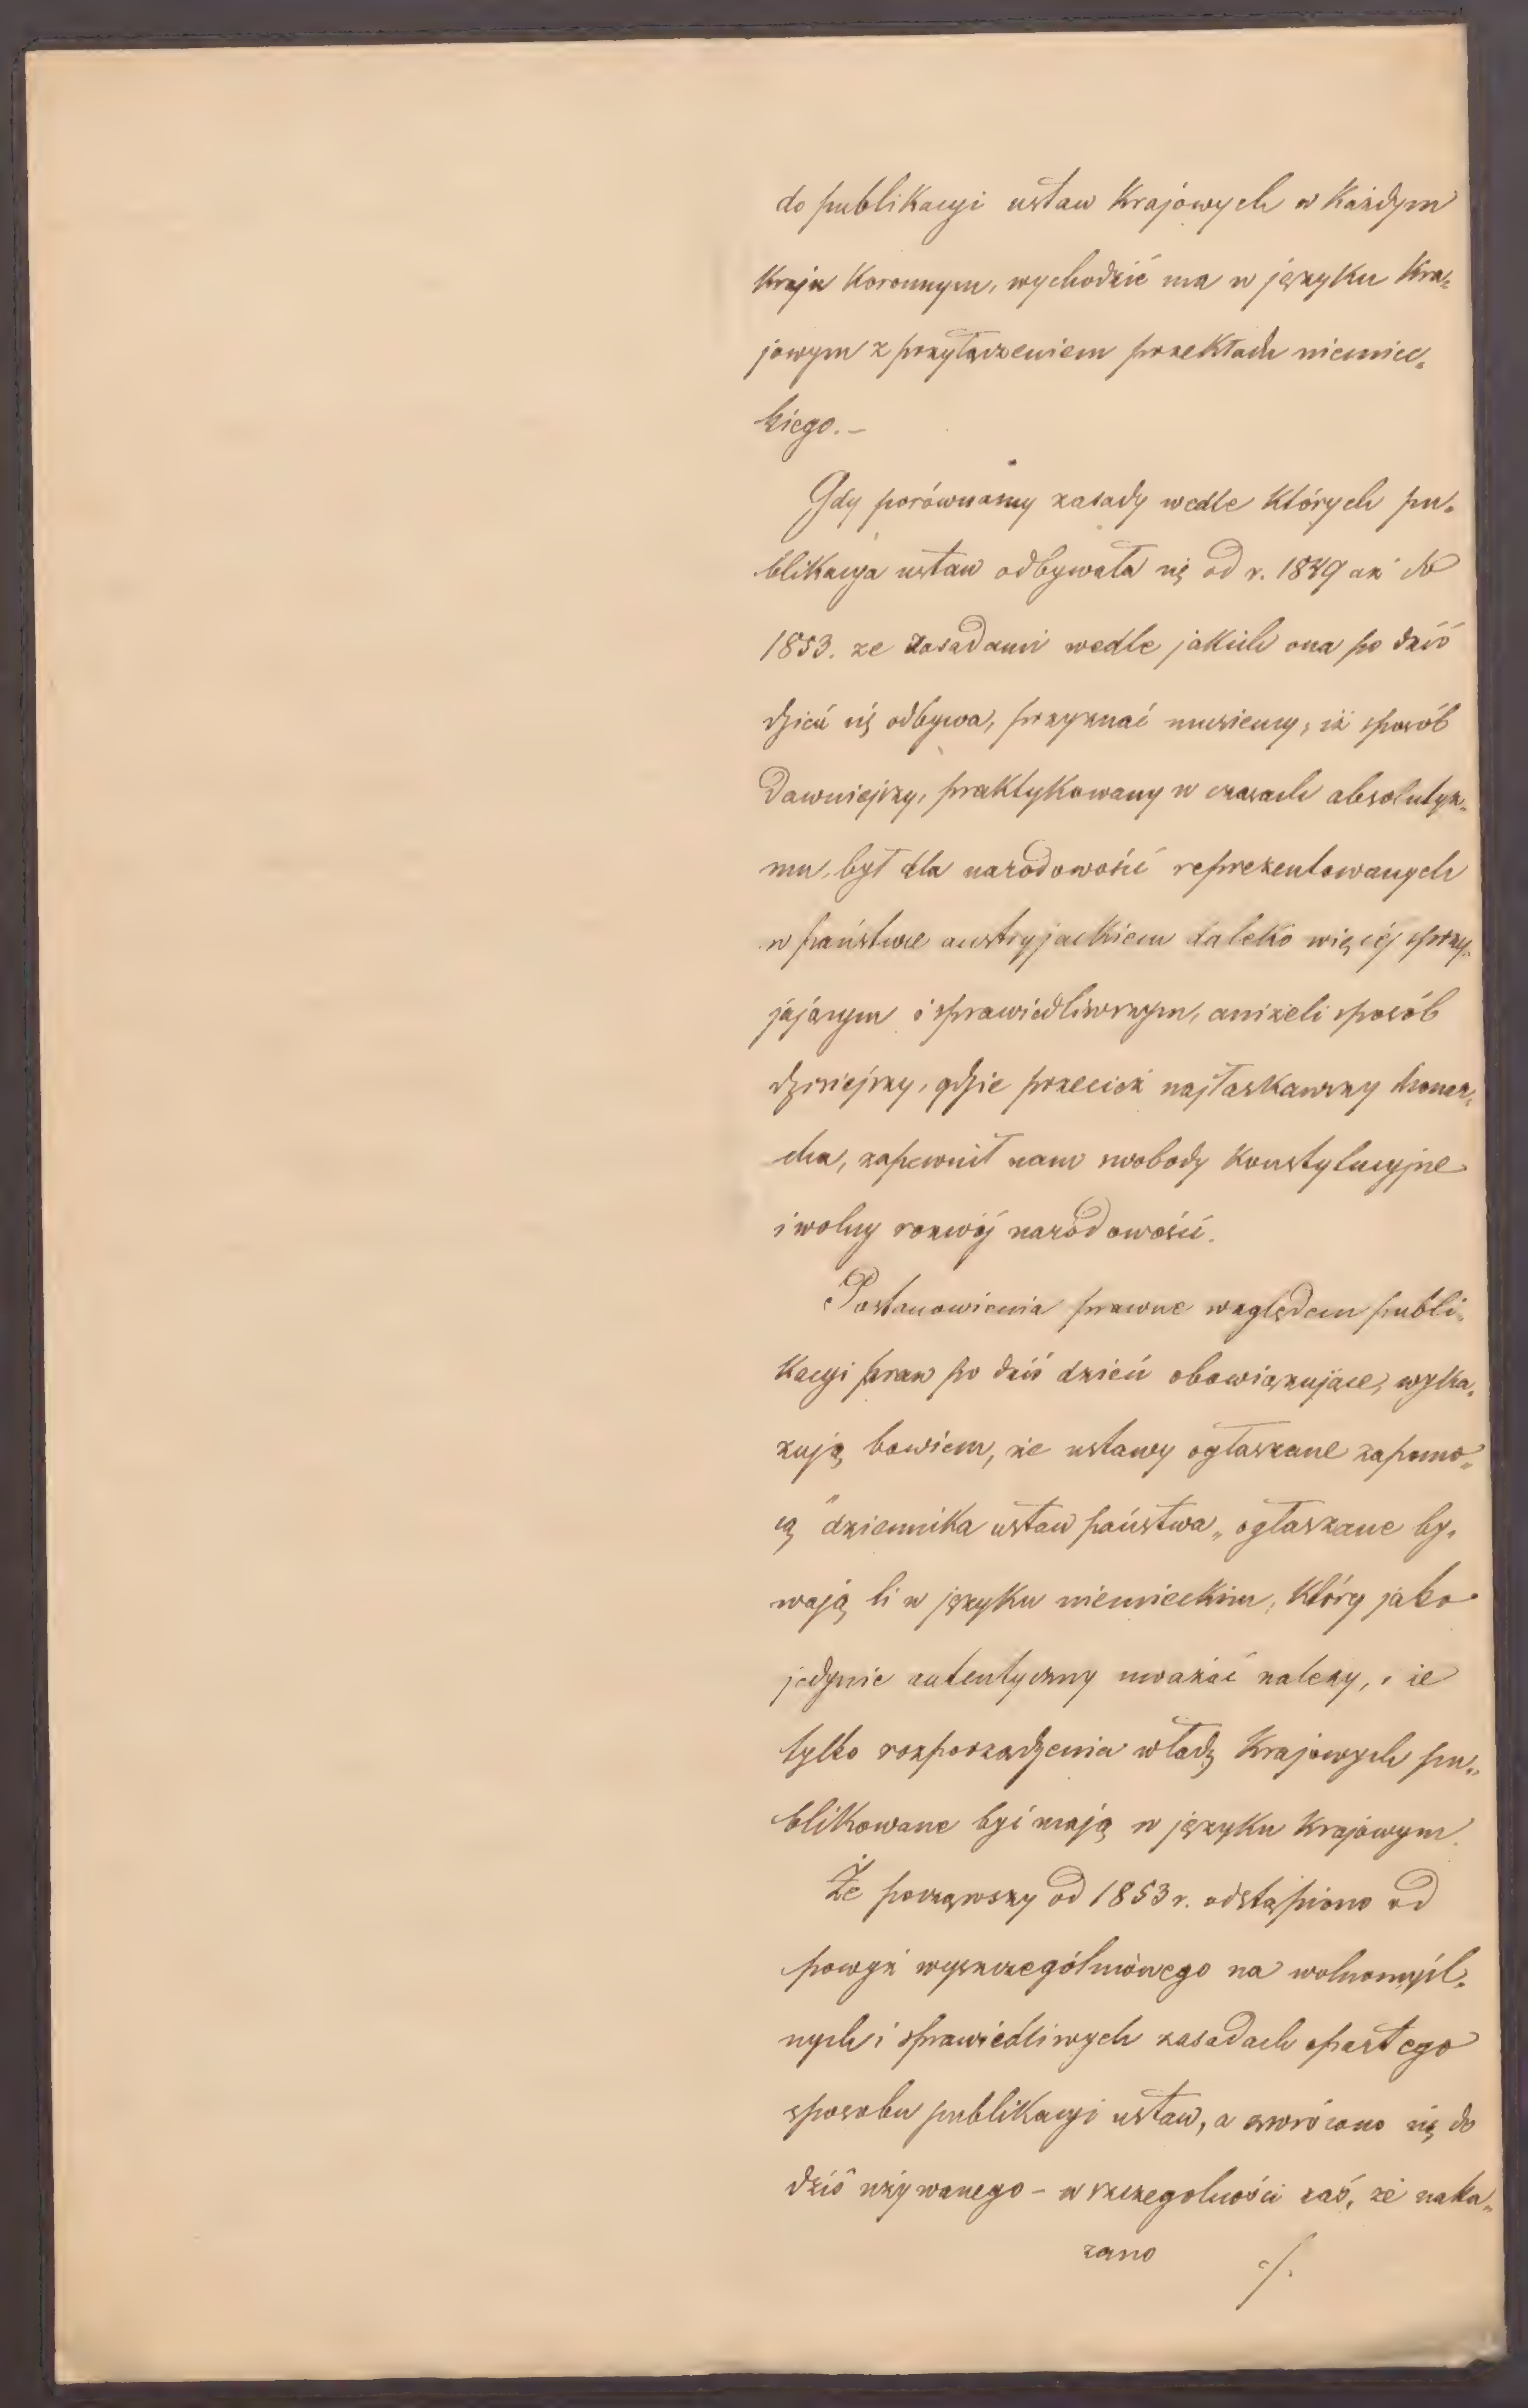 do publikacyi ustaw Krajowych w Każdym
Kraju Koronnym, wychodzić ma w języku Kra„
jowym z przyłączeniem przekładu niemiec„
kiego. –
Gdy porównamy zasady wedle których pu„
blikacya ustaw odbywała się od r. 1849 aż do
1853. ze zasadami wedle jakich ona po dziś
dzień się odbywa, przyznać musiemy, iż sposób
dawniejszy, praktykowany w czasach absolutyz„
mu, był dla narodowości reprezentowanych
w państwie austryjackiem daleko więcéj sprzy„
jającym i sprawiedliwszym, aniżeli sposób
dzisiejszy, gdzie przecież najłaskawszy Monar„
cha, zapewnił nam swobody Konstytucyjne
i wolny rozwój narodowości.
Postanowienia prawne względem publi„
Kacyi praw po dziś dzień obowiązujące, wyka„
zują bowiem, że ustawy ogłaszane zapomo„
cą "dziennika ustaw państwa„ ogłaszane by„
wają li w języku niemieckim, Który jako
jedynie autentyczny uważać należy, i że
tylko rozporządzenia władz Krajowych pu„
blikowane być mają w języku Krajowym.
Że począwszy od 1853 r. odstąpiono od
powyż wyszczególnionego na wolnomyśl„
nych i sprawiedliwych zasadach opartego
sposobu publikacyi ustaw, a zwrócono się do
dziś używanego – w szczegolności zaś, że naka„
zano ./.